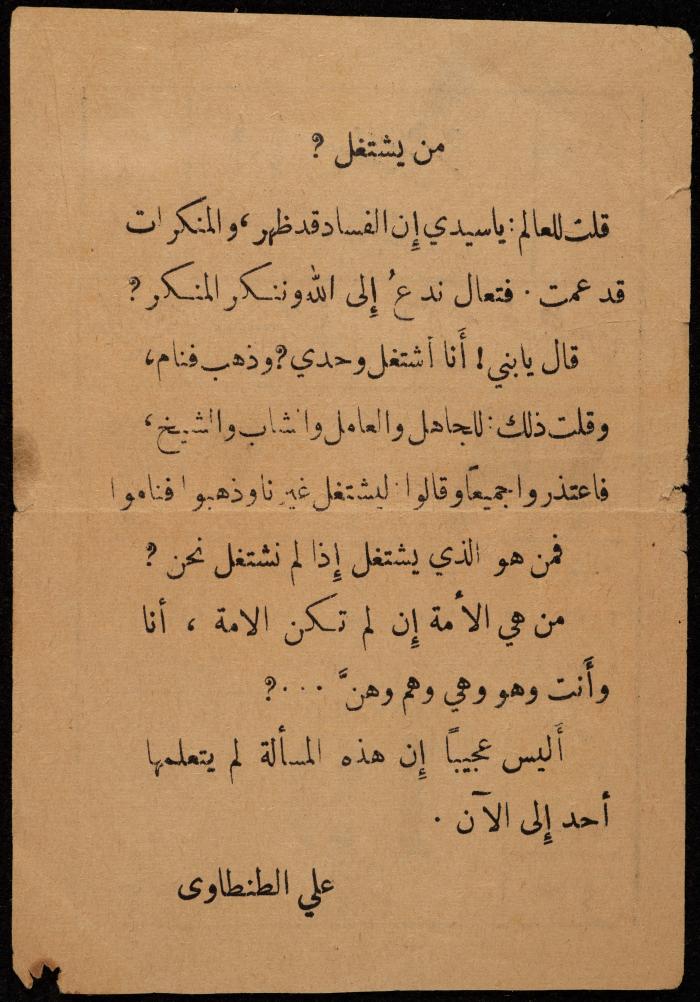 من يشتغل ؟
قلت للعالم : ياسيدي إن الفساد قد ظهر ، والمنكرات
قد عمت . فتعال ندعُ إلى الله وننكر المنكر ؟
قال يابني ! أنا أشتغل وحدي ؟ وذهب فنام ،
وقلت ذلك : للجاهل والعامل والشاب والشيخ ،
فاعتذروا جميعاً وقالوا : ليشتغل غيرنا وذهبوا فناموا
فمن هو الذي يشتغل إذا لم نشتغل نحن ؟
من هي الأمة إن لم تكن الامة ، أنا
وأنت وهو وهي وهم وهنَّ ...؟
أليس عجيباً إن هذه المسألة لم يتعلمها
أحد إلى الآن .
علي الطنطاوى